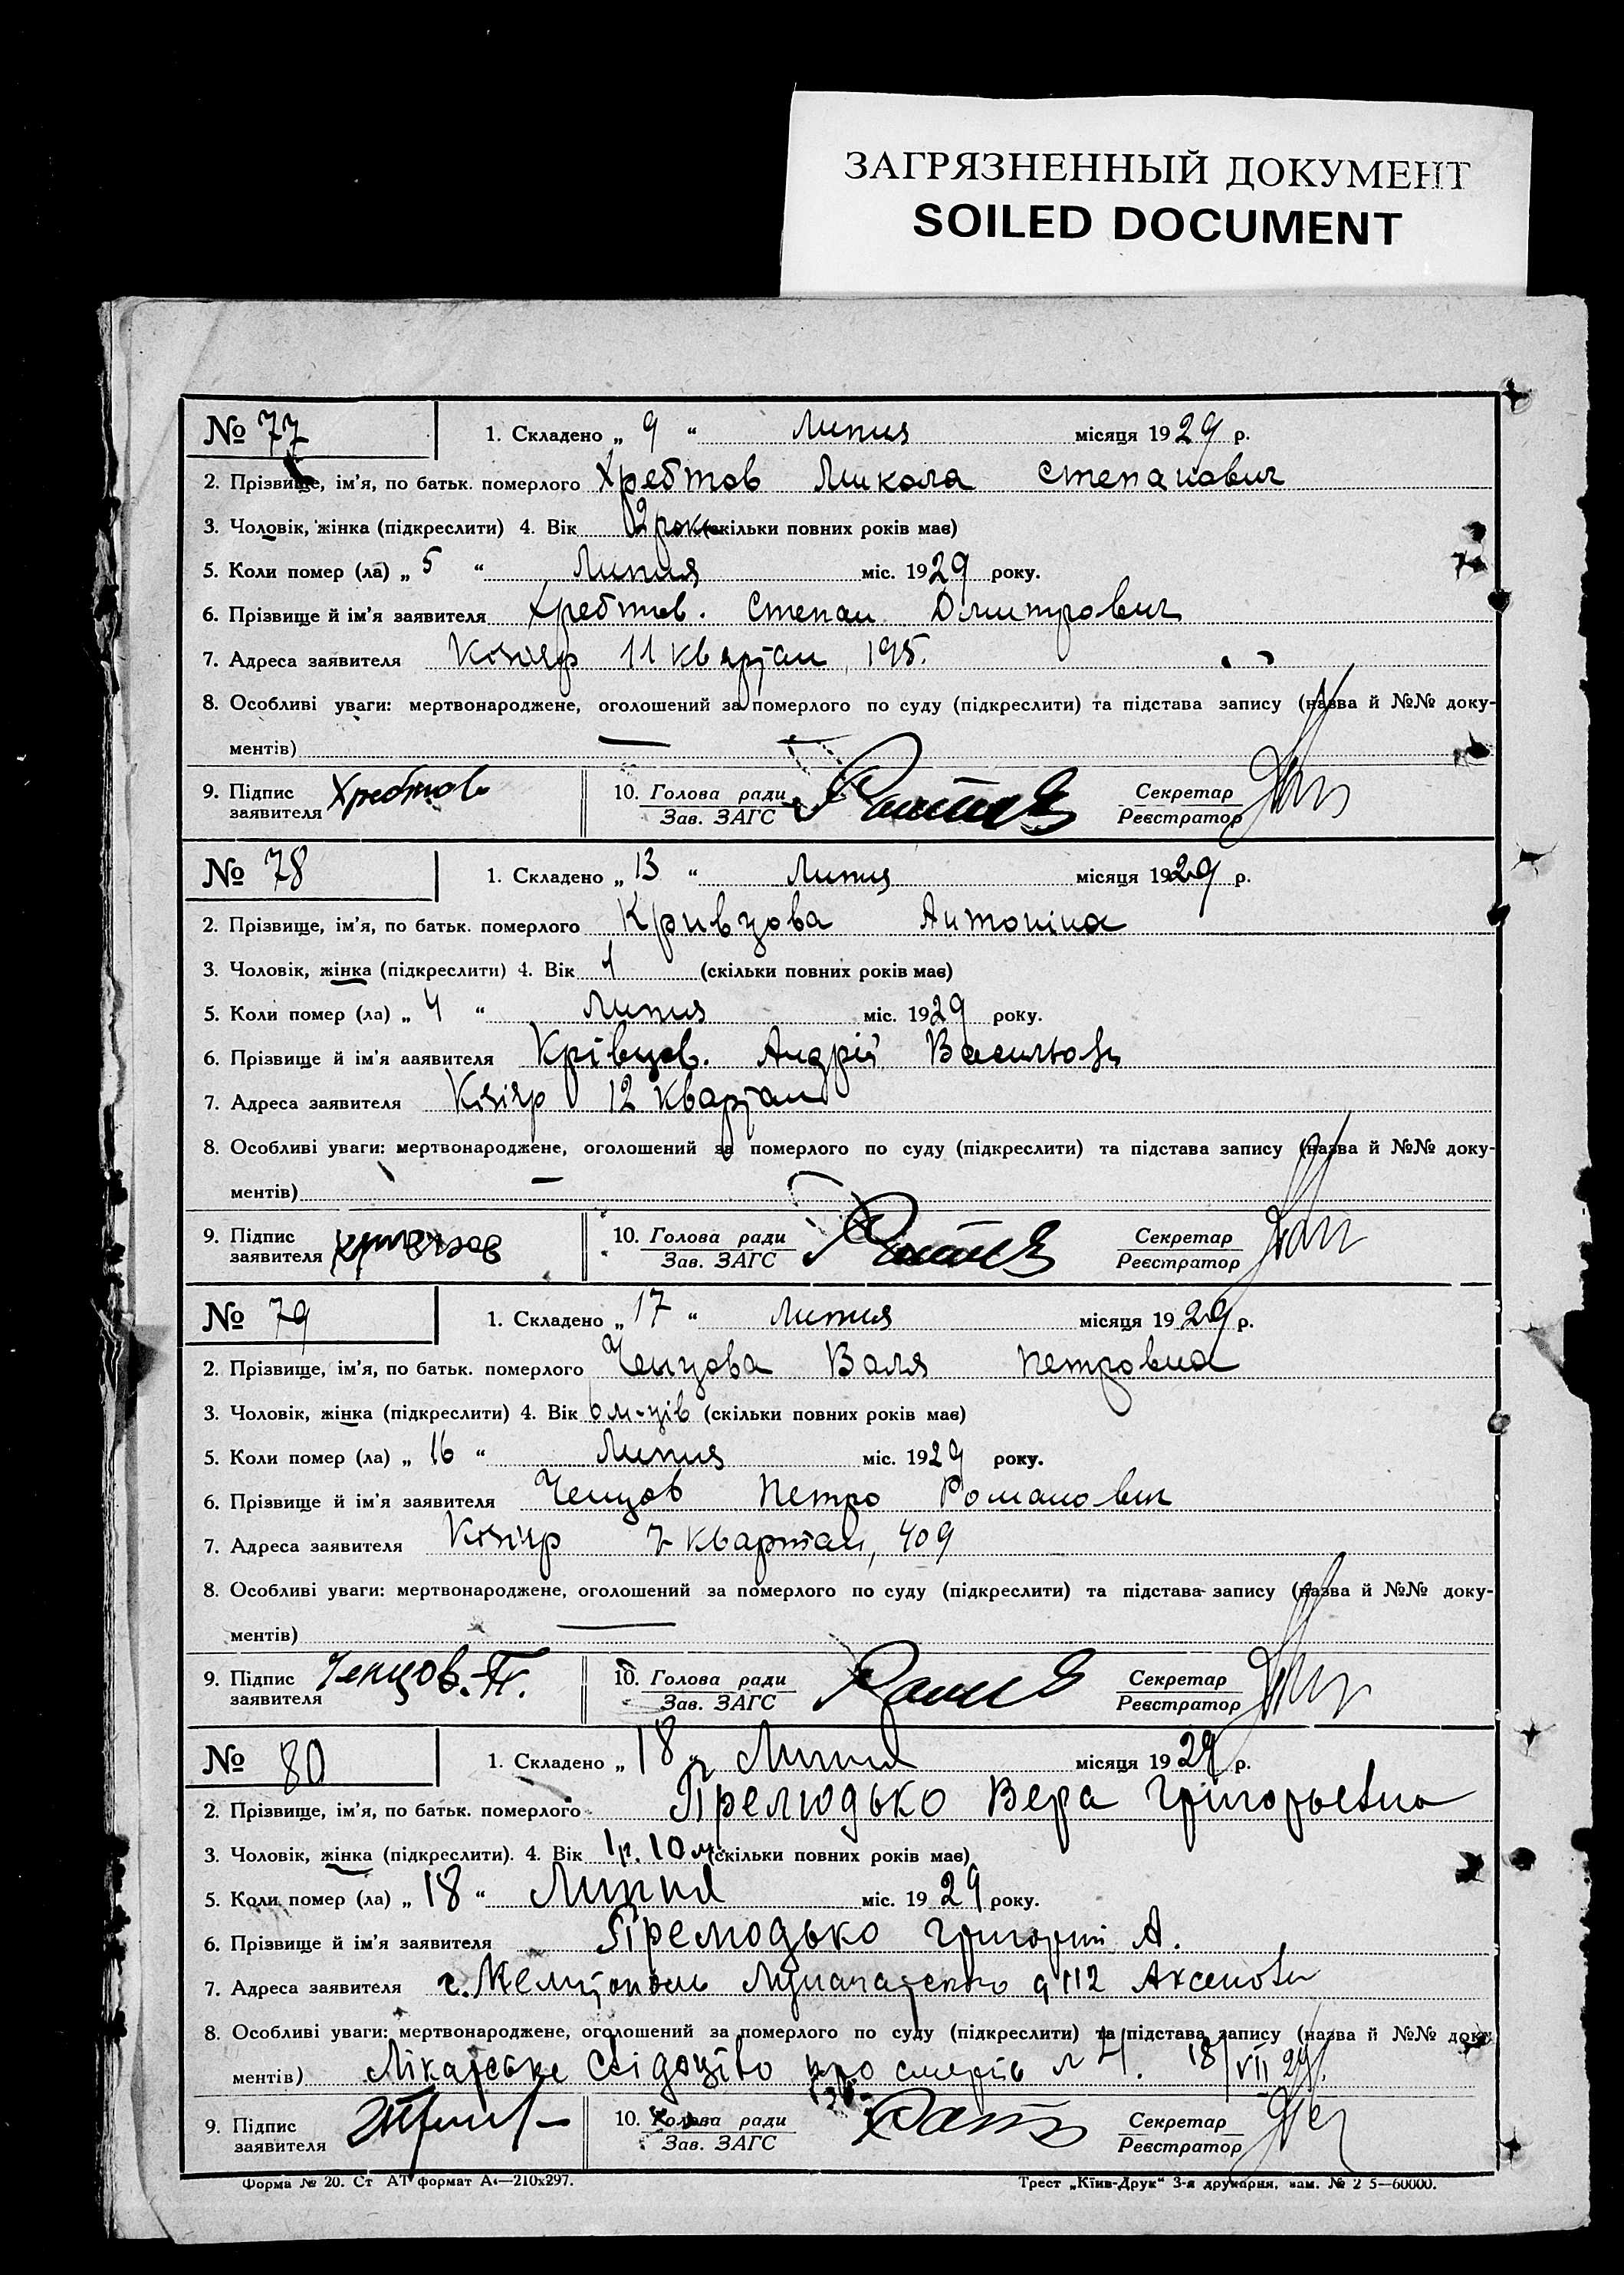 ЗАГРЯЗНЕННЫЙ ДОКУМЕНТ
SOILED DOCUMENT
№ 77 1. Складено „ 9 “ Липня місяця 1929 р.
2. Прізвище, ім'я, по батьк. померлого Хребтов Микола Степанович
3. Чоловік, жінка (підкреслити) 4. Вік 2 роки (скільки повних років має)
5. Коли помер (ла) „ 5 “ Липня міс. 1929 року.
6. Прізвище й ім'я заявителя Хребтов. Степан Дмитрович
7. Адреса заявителя Кізіяр 11 квартал, 195.
8. Особливі уваги: мертвонароджене, оголошений за померлого по суду (підкреслити) та підстава запису (назва й №№ доку-
ментів) —
9. Підпис заявителя Хребтов 10. Голова ради Зав. ЗАГС Секретар Реєстратор
№ 78 1. Складено „ 13 “ Липня місяця 1929 р.
2. Прізвище, ім'я, по батьк. померлого Кривцова Антоніна
3. Чоловік, жінка (підкреслити) 4. Вік 1 (скільки повних років має)
5. Коли помер (ла) „ 4 “ Липня міс. 1929 року.
6. Прізвище й ім'я ааявителя Крівцов. Андрій
7. Адреса заявителя Кізіяр 12 квартал
8. Особливі уваги: мертвонароджене, оголошений за померлого по суду (підкреслити) та підстава запису (назва й №№ доку-
ментів) —
9. Підпис заявителя 10. Голова ради Зав. ЗАГС Секретар Реєстратор
№ 79 1. Складено „ 17 “ Липня місяця 1929 р.
2. Прізвище, ім'я, по батьк. померлого Ченцова Валя Петровна
3. Чоловік, жінка (підкреслити) 4. Вік 6 м-ців (скільки повних років має)
5. Коли помер (ла) „ 16 “ Липня міс. 1929 року.
6. Прізвище й ім'я заявителя Ченцов Петро Романович
7. Адреса заявителя Кізіяр 7 квартал, 409
8. Особливі уваги: мертвонароджене, оголошений за померлого по суду (підкреслити) та підстава запису (назва й №№ доку-
ментів) —
9. Підпис заявителя Ченцов. П. 10. Голова ради Зав. ЗАГС Секретар Реєстратор
№ 80 1. Складено „ 18 “ Липня місяця 1929 р.
2. Прізвище, ім'я, по батьк. померлого Прелюдько Вера Григорьевна
3. Чоловік, жінка (підкреслити). 4. Вік 1 р. 10 м. (скільки повних років має)
5. Коли помер (ла) „ 18 “ Липня міс. 1929 року.
6. Прізвище й ім'я заявителя Григорий А.
7. Адреса заявителя г. Мелітополь д 112
8. Особливі уваги: мертвонароджене, оголошений за померлого по суду (підкреслити) та підстава запису (назва й №№ доку-
ментів) Лікарське свідоцтво про смерть 18/VII 29
9. Підпис заявителя 10. Голова ради Зав. ЗАГС Секретар Реєстратор
Форма № 20. Ст АТ формат А4—210х297. Трест „Київ-Друк“ 3-я друкарня, зам. № 2 5—60000.